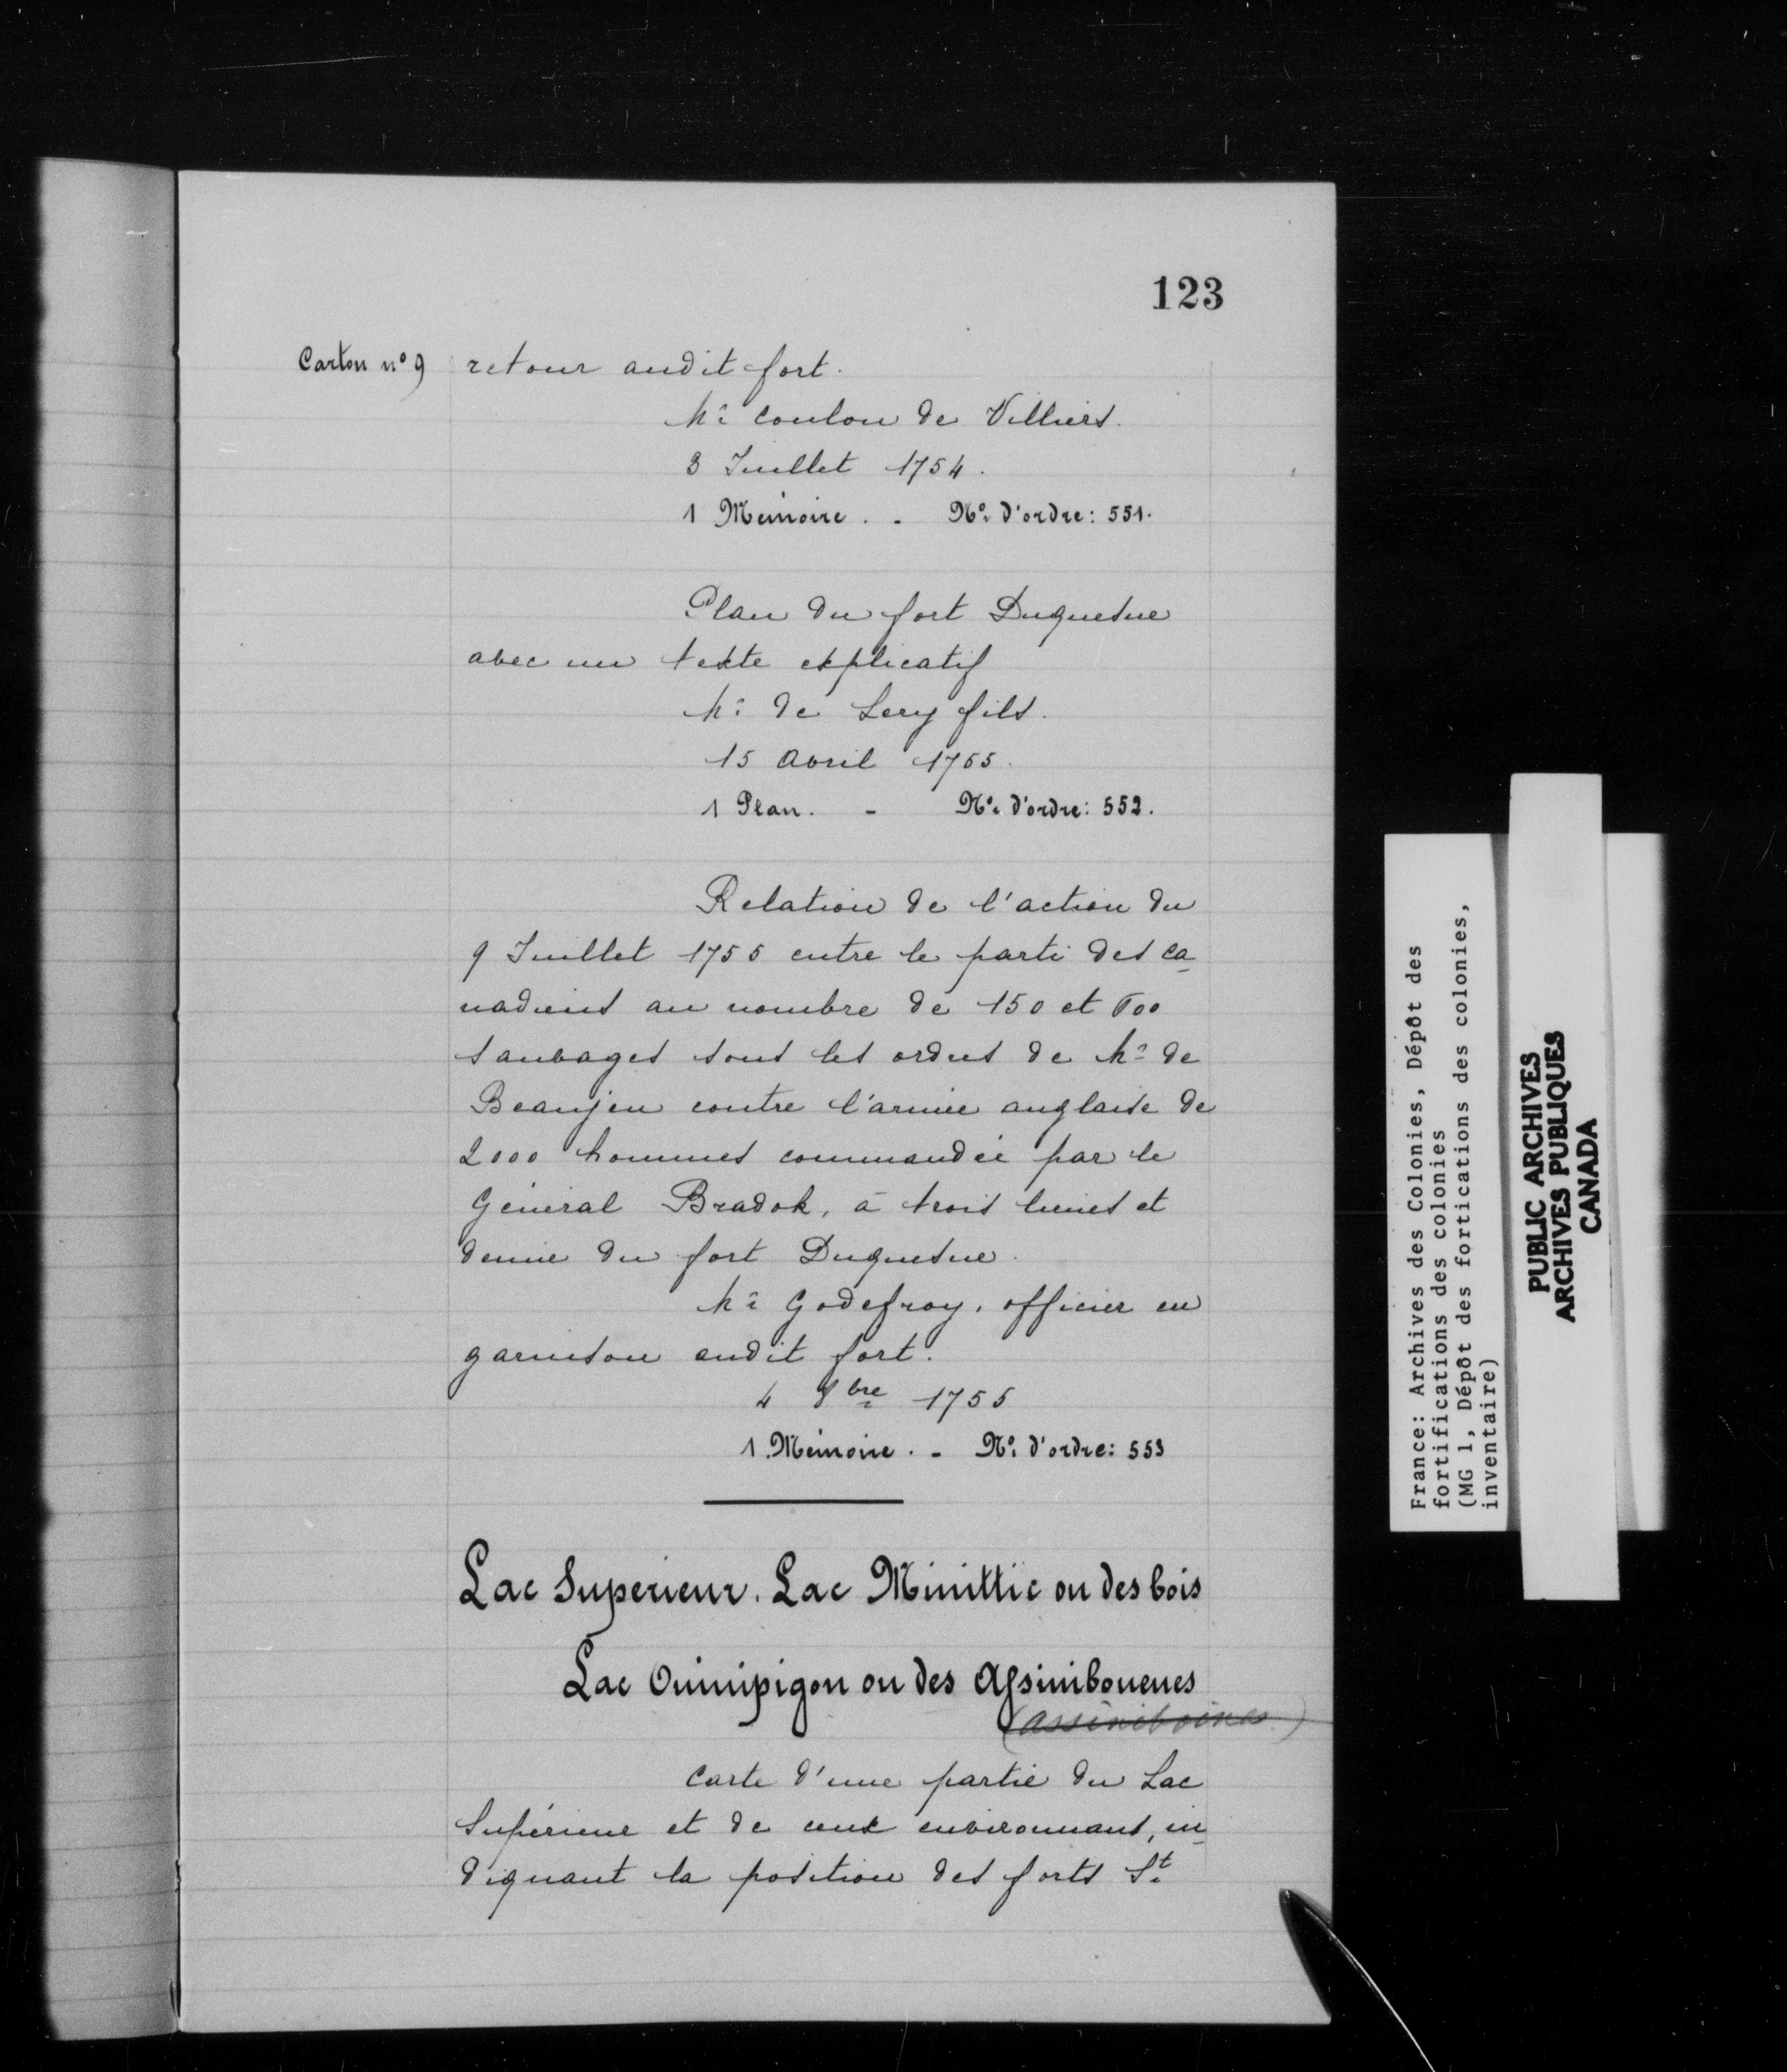 123
Carton nº 9 retour audit fort.
Mr. Coulon de Villiers.
3 Juillet 1754.
1 Mémoire. - Nº d'ordre: 551.
Plan du fort Duquesne
avec un texte explicatif
Mr. de Lery fils.
15 Avril 1755.
1 Plan. - Nº d'ordre: 552.
Relation de l'action du
9 Juillet 1755 entre le parti des Ca-
nadiens au nombre de 150 et 600
sauvages sous les ordres de Mr. de
Beaujeu contre l'armée anglaise de
2000 hommes commandée par le
Général Bradok, à trois lieues et
demie du fort Duquesne.
Mr. Godefroy, officier en
garnison audit fort.
4 8bre 1755
1 Mémoire. - Nº d'ordre: 553
Lac Superieur. Lac Minittic ou des bois
Lac Ouinipigon ou des Assinibouenes
(assiniboines)
Carte d'une partie du Lac
Supérieur et de ceux environnant, in-
diquant la position des forts St.
France: Archives des Colonies, Dépôt des
fortifications des colonies
(MG 1, Dépôt des fortications des colonies,
inventaire)
PUBLIC ARCHIVES
ARCHIVES PUBLIQUES
CANADA